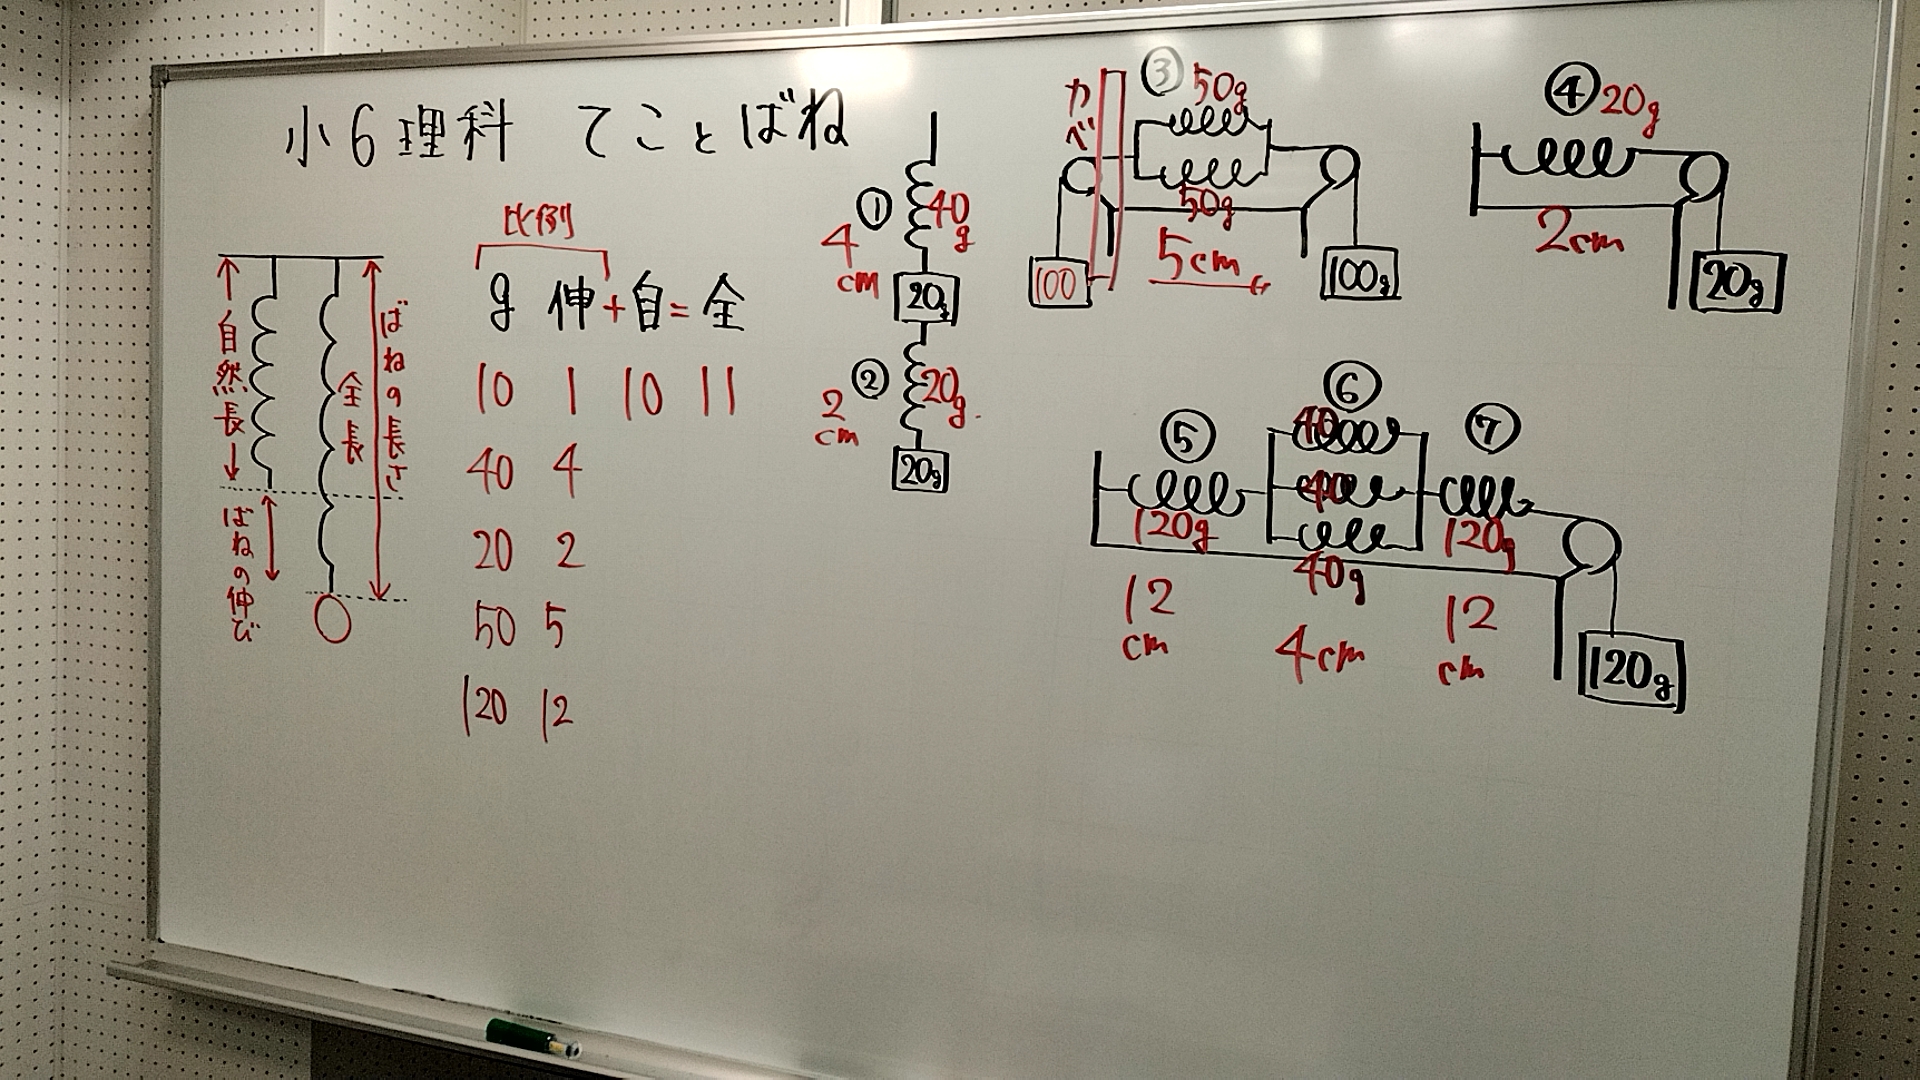 小6理科 てことばね
自然長
ばねの伸び
全長
ばねの長さ
比例
g 伸+自=全
10 1 10 11
40 4
20 2
50 5
120 12
① 40g
4cm
20g
② 20g
2cm
20g
カベ
③ 50g
50g
5cm
100
100g
④ 20g
2cm
20g
⑤
120g
12cm
⑥
40
40
40g
4cm
⑦
120g
12cm
120g